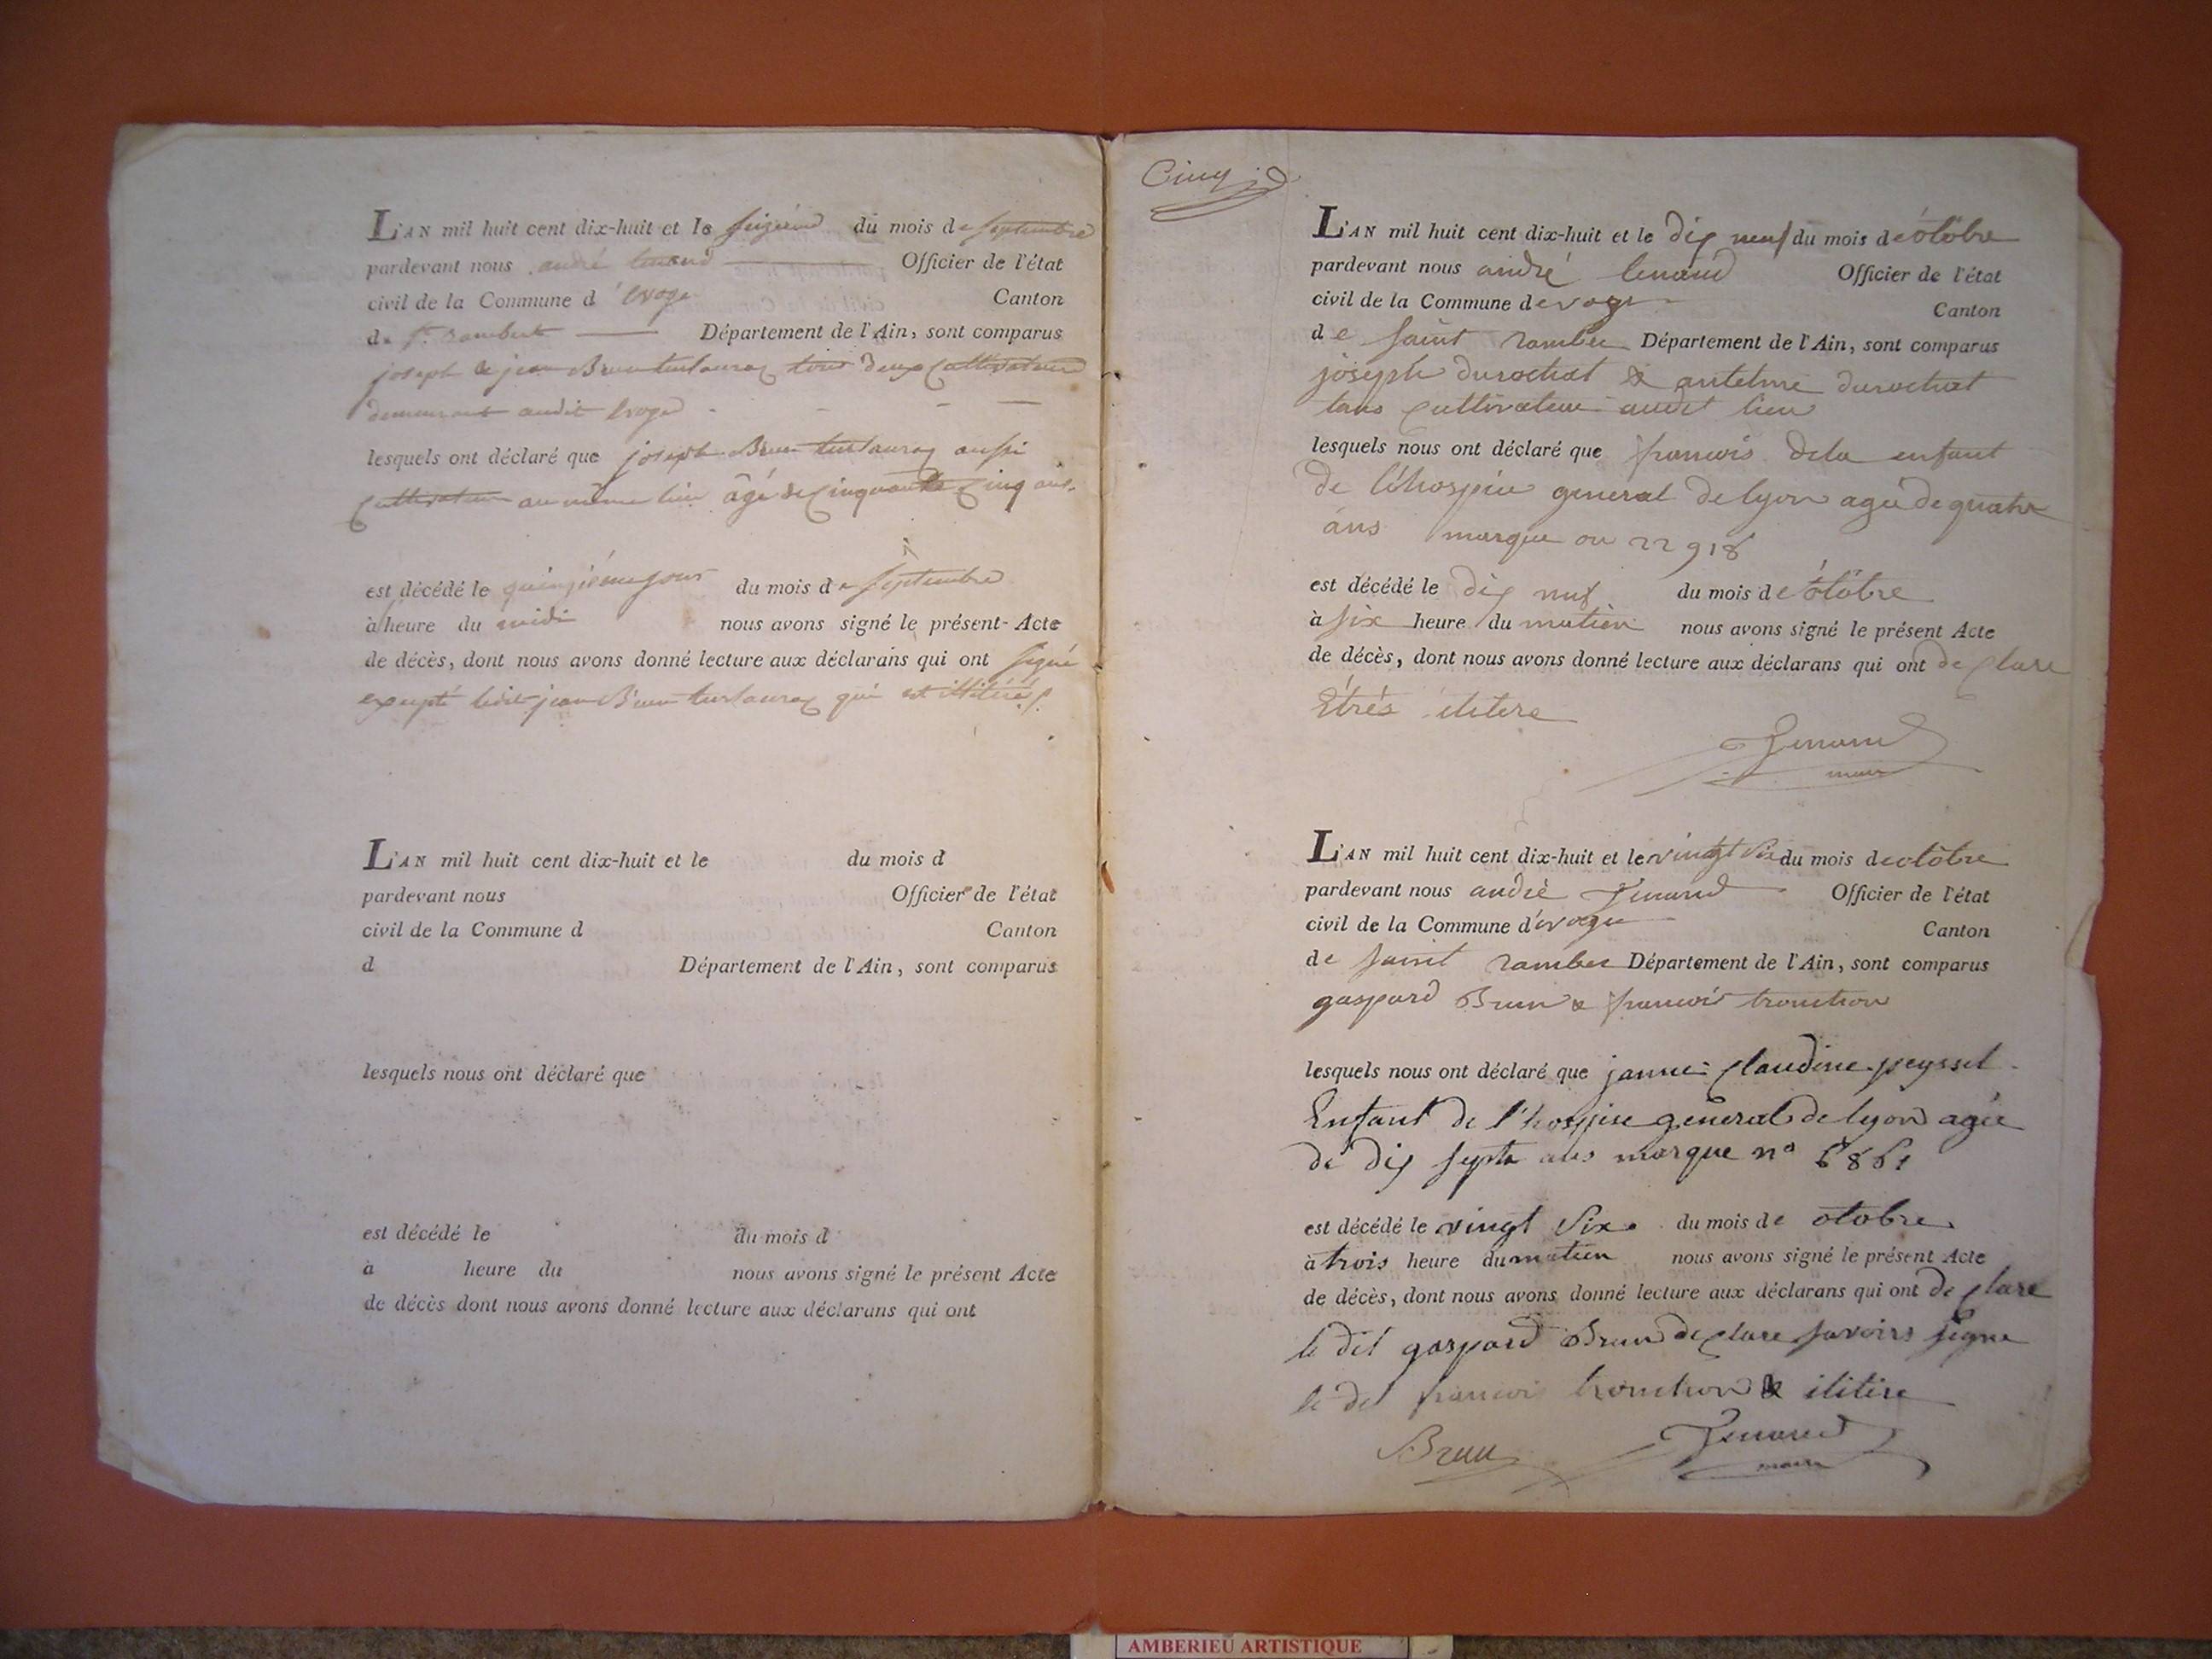 L'AN mil huit cent dix-huit et le seizieme du mois de septembre
pardevant nous andré tenand Officier de l'état
civil de la Commune d'evoge Canton
de st. rambert Département de l'Ain, sont comparus
joseph & jean Brun tous deux Cultivateurs
demeurant audit Evoge
lesquels ont déclaré que joseph Brun aussi
Cultivateur au même lieu âgé de Cinquante Cinq ans
est décédé le quinzième jour du mois de septembre
à heure du midi nous avons signé le présent Acte
de décès, dont nous avons donné lecture aux déclarans qui ont signé
excepté ledit jean Brun qui est illitéré
L'AN mil huit cent dix-huit et le du mois d
pardevant nous Officier de l'état
civil de la Commune d Canton
d Département de l'Ain, sont comparus
lesquels nous ont déclaré que
est décédé le du mois d
à heure du nous avons signé le présent Acte
de décès dont nous avons donné lecture aux déclarans qui ont
Cinq
L'AN mil huit cent dix-huit et le dix neuf du mois de otobre
pardevant nous andré tenand Officier de l'état
civil de la Commune d evoge Canton
de saint ramber Département de l'Ain, sont comparus
joseph durochat & antelme durochat
tous Cultivateur audit lieu
lesquels nous ont déclaré que francois dela enfant
de l'éhospice general de lyon agé de quatre
ans marque ou 22918
est décédé le dix neuf du mois de otobre
à six heure du matien nous avons signé le présent Acte
de décès, dont nous avons donné lecture aux déclarans qui ont de clare
Etrés ilitere
Tenand
maire
L'AN mil huit cent dix-huit et le vingt six du mois de otobre
pardevant nous andré Tenand Officier de l'état
civil de la Commune d'evoge Canton
de saint ramber Département de l'Ain, sont comparus
gaspard Brun & francois tronchon
lesquels nous ont déclaré que janne Claudine peyssel
Enfant de l'hospise general de lyon agée
de dix septe ans marque n° 6861
est décédé le vingt six du mois de otobre
à trois heure du matien nous avons signé le présent Acte
de décès, dont nous avons donné lecture aux déclarans qui ont de clare
le dit gaspard Brun de clare savoirs signe
le dit francois tronchon & ilitire
Brun Tenand
maire
AMBERIEU ARTISTIQUE